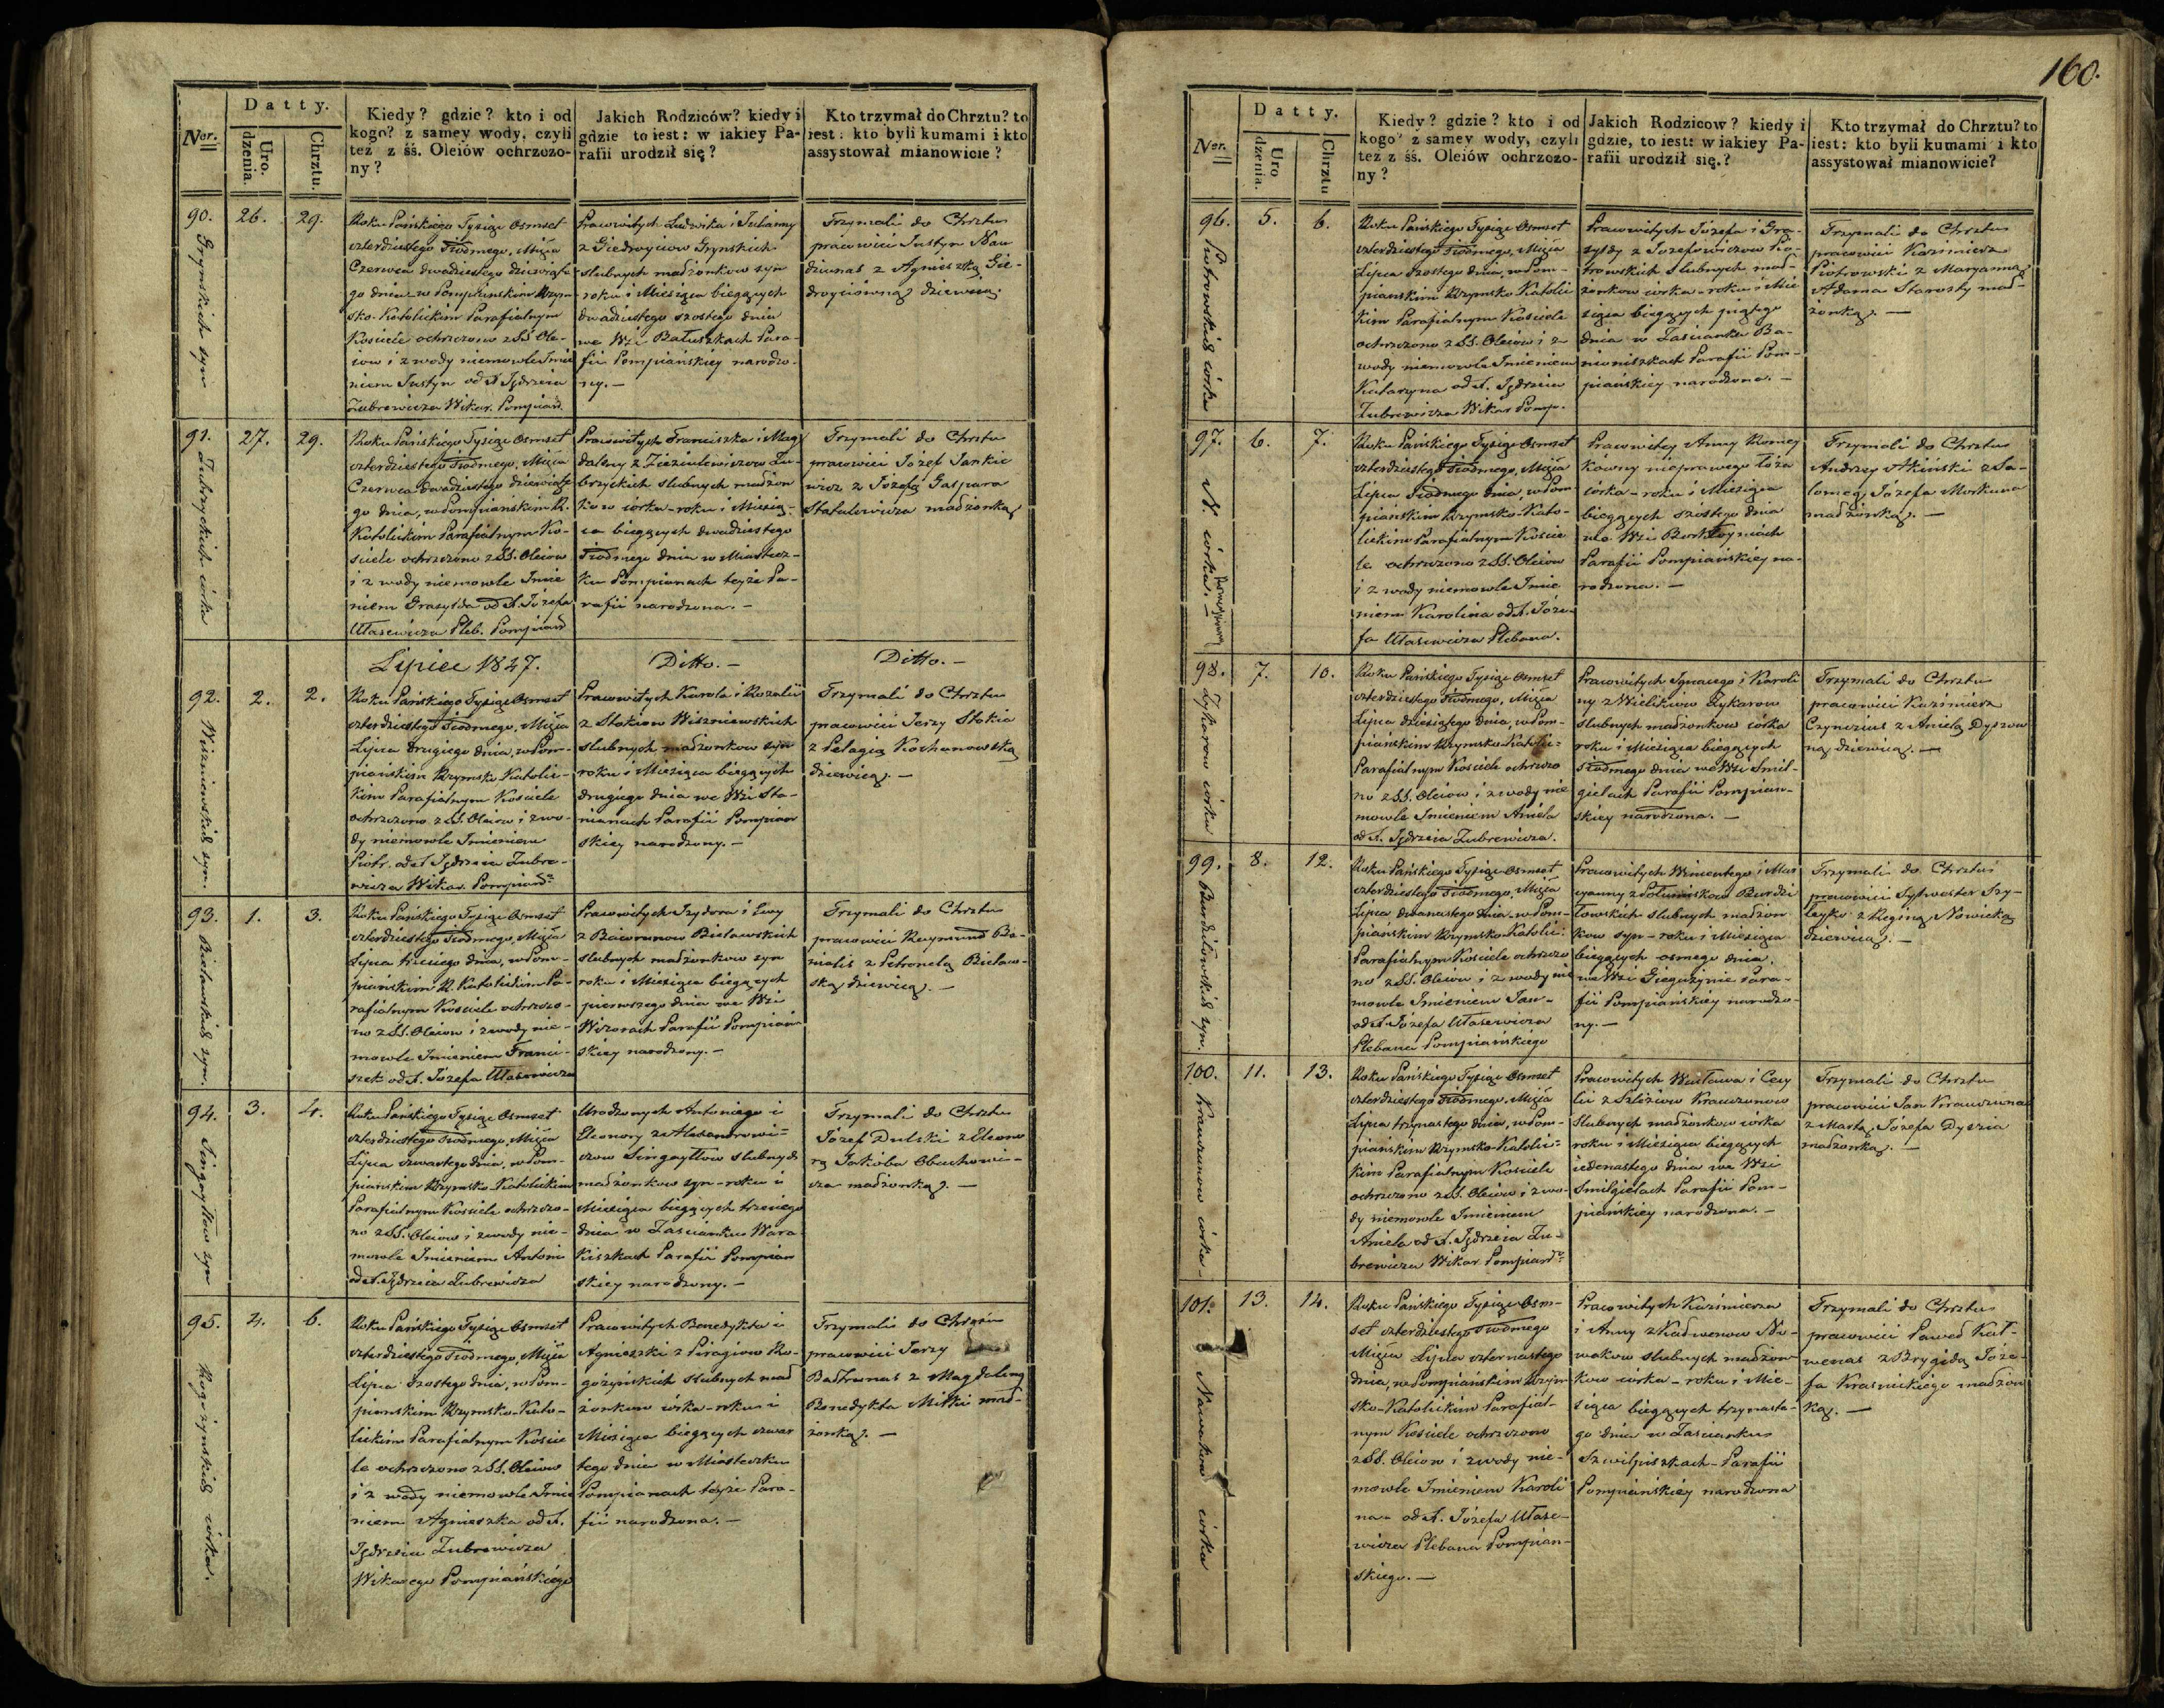 160.
Nər.
Datty.
Uro.
dzenia.
Chrztu.
Kiedy? gdzie? kto i od
kogo? z samey wody, czyli
też z śś. Oleiów ochrzczo-
ny?
Jakich Rodziców? kiedy i
gdzie to iest: w iakiey Pa-
rafii urodził się?
Kto trzymał do Chrztu? to
iest: kto byli kumami i kto
assystował mianowicie?
90.
26.
29.
syn
Roku Pańskiego Tysiąc Osmset
czterdziestego Siodmego, Miesiąca
Czerwca dwadziestego dziewiąte
go dnia w Pompiańskim Rzym-
sko-Katolickim Parafialnym
Kosciele ochrzczono z SS. Ole-
iow i z wody niemowle Imie
niem Justyn od X. Jędrzeia
Zubrewicza Wikar. Pompiań.
Pracowitych Ludwika i Julianny
z Giedroyciow Grynskich
slubnych małżonkow syn
roku i Miesiąca biegących
dwadziestego szostego dnia
we Wsi Bałuszkach Para-
fii Pompiańskiey narodzo-
ny. —
Trzymali do Chrztu
pracowici Justyn Nau
dziunas z Agnieszką Gie-
droyciowną dziewicą.
91.
27.
29.
córka
Roku Pańskiego Tysiąc Osmset
czterdziestego Siodmego, Miesiąca
Czerwca dwadziestego dziewiąte
go dnia, w Pompiańskim R.
Katolickim Parafialnym Ko-
sciele ochrzczono z SS. Oleiow
i z wody niemowle Imie
niem Grasylda od X. Józefa
Ułasewicza Pleb. Pompiań
Pracowitych Franciszka i Mag
daleny z Zieziulewiczow Zu-
bryckich slubnych małżon
kow córka - roku i Miesią-
ca biegących dwadziestego
Siodmego dnia w Miastecz-
ku Pompianach teyże Pa-
rafii narodzona. —
Trzymali do Chrztu
pracowici Józef Jankie
wicz z Józefą Gaspara
Statulewicza małżonką
Lipiec 1847.
Ditto. —
Ditto. —
92.
2.
2.
Wiszniewskich syn.
Roku Pańskiego Tysiąc Osmset
czterdziestego Siodmego, Miesiąca
Lipca drugiego dnia, w Pom-
piańskim Rzymsko Katolic-
kim Parafialnym Kosciele
ochrzczono z SS. Oleiow i z wo-
dy niemowle Imieniem
Piotr. od X. Jędrzeia Zubre-
wicza Wikar. Pompiań:
Pracowitych Karola i Rozalii
z Stokiow Wiszniewskich
slubnych małżonkow syn
roku i Miesiąca biegących
drugiego dnia we Wsi Sta-
nianach Parafii Pompiań
skiey narodzony. —
Trzymali do Chrztu
pracowici Jerzy Stokia
z Pelagią Kochanowską
dziewicą. —
93.
1.
3.
Bielawskich syn.
Roku Pańskiego Tysiąc Osmset
czterdziestego Siodmego, Miesiąca
Lipca trzeciego dnia, w Pom-
piańskim R. Katolickim Pa-
rafialnym Kosciele ochrzczo-
no z SS. Oleiow i z wody nie-
mowle Imieniem Franci-
szek od X. Józefa Ułasewicza
Pracowitych Izydora i Ewy
z Baiorunow Bielawskich
slubnych małżonkow syn
roku i Miesiąca biegących
pierwszego dnia we Wsi
Wizorach Parafii Pompiań
skiey narodzony. —
Trzymali do Chrztu
pracowici Raymund Ba-
nialis z Petronelą Bielaw-
ską dziewicą. —
94.
3.
4.
Singayłłow syn
Roku Pańskiego Tysiąc Osmset
czterdziestego Siodmego, Miesiąca
Lipca czwartego dnia, w Pom-
piańskim Rzymsko-Katolickim
Parafialnym Kosciele ochrzczo-
no z SS. Oleiow i z wody nie-
mowle Imieniem Antoni
od X. Jędrzeia Zubrewicza
Urodzonych Antoniego i
Eleonory z Alexandrowi-
czow Singayłłow slubnych
małżonkow syn - roku i
Miesiąca biegących trzeciego
dnia w Zascianku Wara
kiszkach Parafii Pompiań
skiey narodzony. —
Trzymali do Chrztu
Józef Dulski z Eleono
rą Jakoba Obuchowi-
cza małżonką. —
95.
4.
6.
Rogożynskich córka.
Roku Pańskiego Tysiąc Osmset
czterdziestego Siodmego, Miesiąca
Lipca szostego dnia, w Pom-
pianskim Rzymsko-Kato-
lickim Parafialnym Koscie
le ochrzczono z SS. Oleiow
i z wody niemowle Imie
niem Agnieszka od X.
Jędrzeia Zubrewicza
Wikarego Pompiańskiego
Pracowitych Benedykta i
Agnieszki z Piragiow Ro-
gożynskich slubnych mał
żonkow córka - roku i
Miesiąca biegących czwar
tego dnia w Miasteczku
Pompianach teyże Para-
fii narodzona. —
Trzymali do Chrztu
pracowici Jerzy
Bałtrunas z Magdaleną
Benedykta Mitki mał-
żonką. —
Nər.
Datty.
Uro
dzenia.
Chrztu
Kiedy? gdzie? kto i od
kogo? z samey wody, czyli
też z śś. Oleiów ochrzczo-
ny?
Jakich Rodzicow? kiedy i
gdzie, to iest: w iakiey Pa-
rafii urodził się.?
Kto trzymał do Chrztu? to
iest: kto byli kumami i kto
assystował mianowicie?
96.
5.
6.
Piotrowskich córka
Roku Pańskiego Tysiąc Osmset
czterdziestego Siodmego, Miesiąca
Lipca szostego dnia, w Pom-
pianskim Rzymsko Katolic
kim Parafialnym Kosciele
ochrzczono z SS. Oleiow i z
wody niemowle Imieniem
Katarzyna od X. Jędrzeia
Zubrewicza Wikar. Pomp.
Pracowitych Józefa i Gra-
syldy z Jozefowiczow Pio-
trowskich slubnych mał-
żonkow córka - roku i Mie
siąca biegących piątego
dnia w Zascianku Ba-
nioniszkach Parafii Pom-
piańskiey narodzona. —
Trzymali do Chrztu
pracowici Kazimierz
Piotrowski z Maryanną
Adama Starosty mał-
żonką. —
97.
6.
7.
N. córka. —
Roku Pańskiego Tysiąc Osmset
czterdziestego Siodmego, Miesiąca
Lipca Siodmego dnia, w Pom
piańskim Rzymsko-Kato-
lickim Parafialnym Koscie
le ochrzczono z SS. Oleiow
i z wody niemowle Imie
niem Karolina od X. Józe-
fa Ułasewicza Plebana.
Pracowitey Anny Romey
kówny nieprawego łoża
córka - roku i Miesiąca
biegących szostego dnia
we Wsi
Parafii Pompiańskiey na-
rodzona. —
Trzymali do Chrztu
Andrzey Akiński z Sa-
lomeą Józefa Morkuna
małżonką. —
98.
7.
10.
Zykarow córka
Roku Pańskiego Tysiąc Osmset
czterdziestego Siodmego, Miesiąca
Lipca dziesiątego dnia, w Pom-
piańskim Rzymsko-Katolic-
Parafialnym Kosciele ochrzczo
no z SS. Oleiow i z wody nie
mowle Imieniem Aniela
od X. Jędrzeia Zubrewicza.
Pracowitych Ignacego i Karoli
ny z Wielikiow Zykarow
slubnych małżonkow córka
roku i Miesiąca biegących
siodmego dnia we Wsi Smil-
gielach Parafii Pompian-
skiey narodzona. —
Trzymali do Chrztu
pracowici Kazimierz
Czyncius z Anielą Dyszow
ną dziewicą. —
99.
8.
12.
Burdziłowskich syn
Roku Pańskiego Tysiąc Osmset
czterdziestego Siodmego, Miesiąca
Lipca dwanastego dnia - w Pom-
pianskim Rzymsko-Katolic:
Parafialnym Kosciele ochrzczo
no z SS. Oleiow i z wody nie
mowle Imieniem Jan -
od X. Józefa Ułasewicza
Plebana Pompiańskiego
Pracowitych Wincentego i Mar
yanny z Potumskow Burdzi
łowskich slubnych małżon
kow syn - roku i Miesiąca
biegących osmego dnia.
we Wsi Giegużynie Para-
fii Pompiańskiey narodzo-
ny. —
Trzymali do Chrztu
pracowici Sylwester Szy-
leyko z Reginą Nowicką
dziewicą. —
100.
11.
13.
Krauczunow córka -
Roku Pańskiego Tysiąc Osmset
czterdziestego Siodmego, Miesiąca
Lipca trzynastego dnia, w Pom-
piańskim Rzymsko-Katolic-
kim Parafialnym Kosciele
ochrzczono z SS. Oleiow i z wo-
dy niemowle Imieniem
Aniela od X. Jędrzeia Zu-
brewicza Wikar. Pompiań:
Pracowitych Wacława i Cecy
lii z Szliżiow Krauczunow
slubnych małżonkow córka
roku i Miesiąca biegących
iedenastego dnia we Wsi
Smilgielach Parafii Pom-
piańskiey narodzona. —
Trzymali do Chrztu
pracowici Jan Krauczunas
z Martą Józefa Dyszia
małżonką. —
101.
13.
14.
Nowakow córka
Roku Pańskiego Tysiąc Osm-
set czterdziestego Siodmego
Miesiąca Lipca czternastego
dnia, w Pompiańskim Rzym
sko-Katolickim Parafial-
nym Kosciele ochrzczono
z SS. Oleiow i z wody nie-
mowle Imieniem Karoli
na - od X. Józefa Ułase-
wicza Plebana Pompian-
skiego. —
Pracowitych Kazimierza
i Anny z Kadwenow No-
wakow slubnych małżon
kow córka - roku i Mie-
siąca biegących trzynaste-
go dnia w Zascianku
Szwilpiszkach - Parafii
Pompiańskiey narodzona
Trzymali do Chrztu
pracowici Paweł Kat-
wenas z Brygidą Józe-
fa Krasnickiego małżon
ką. —